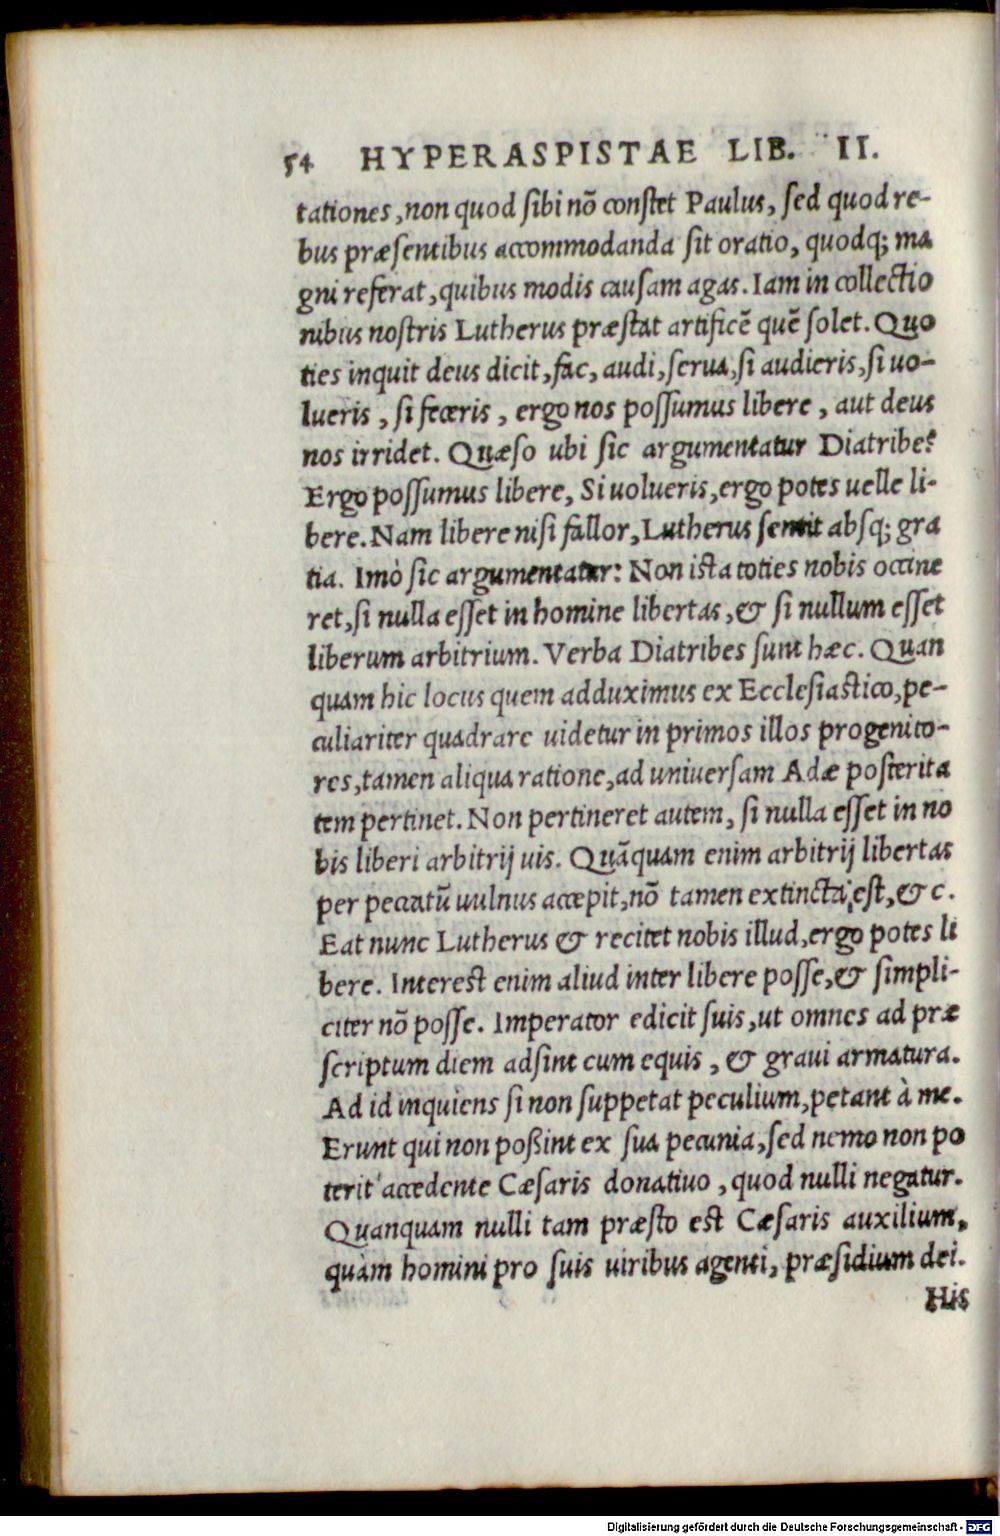 54 HYPERASPISTAE LIB. II.
tationes, non quod sibi nõ constet Paulus, sed quod re-
bus præsentibus accommodanda sit oratio, quodq; ma
gni referat, quibus modis causam agas. Iam in collectio
nibus nostris Lutherus præstat artificẽ quẽ solet. Quo
ties inquit deus dicit, fac, audi, serua, si audieris, si uo-
lueris, si feceris, ergo nos possumus libere, aut deus
nos irridet. Quæso ubi sic argumentatur Diatribe?
Ergo possumus libere, Si uolueris, ergo potes uelle li-
bere. Nam libere nisi fallor, Lutherus sentit absq; gra
tia. Imò sic argumentatur: Non ista toties nobis occine
ret, si nulla esset in homine libertas, & si nullum esset
liberum arbitrium. Verba Diatribes sunt hæc. Quan
quam hic locus quem adduximus ex Ecclesiastico, pe-
culiariter quadrare uidetur in primos illos progenito-
res, tamen aliqua ratione, ad uniuersam Adæ posterita
tem pertinet. Non pertineret autem, si nulla esset in no
bis liberi arbitrij uis. Quãquam enim arbitrij libertas
per peccatũ uulnus accepit, nõ tamen extincta est, & c.
Eat nunc Lutherus & recitet nobis illud, ergo potes li
bere. Interest enim aliud inter libere posse, & simpli-
citer nõ posse. Imperator edicit suis, ut omnes ad præ
scriptum diem adsint cum equis, & graui armatura.
Ad id inquiens si non suppetat peculium, petant à me.
Erunt qui non poßint ex sua pecunia, sed nemo non po
terit accedente Cæsaris donatiuo, quod nulli negatur.
Quanquam nulli tam præsto est Cæsaris auxilium,
quàm homini pro suis uiribus agenti, præsidium dei.
His
Digitalisierung gefördert durch die Deutsche Forschungsgemeinschaft - DFG